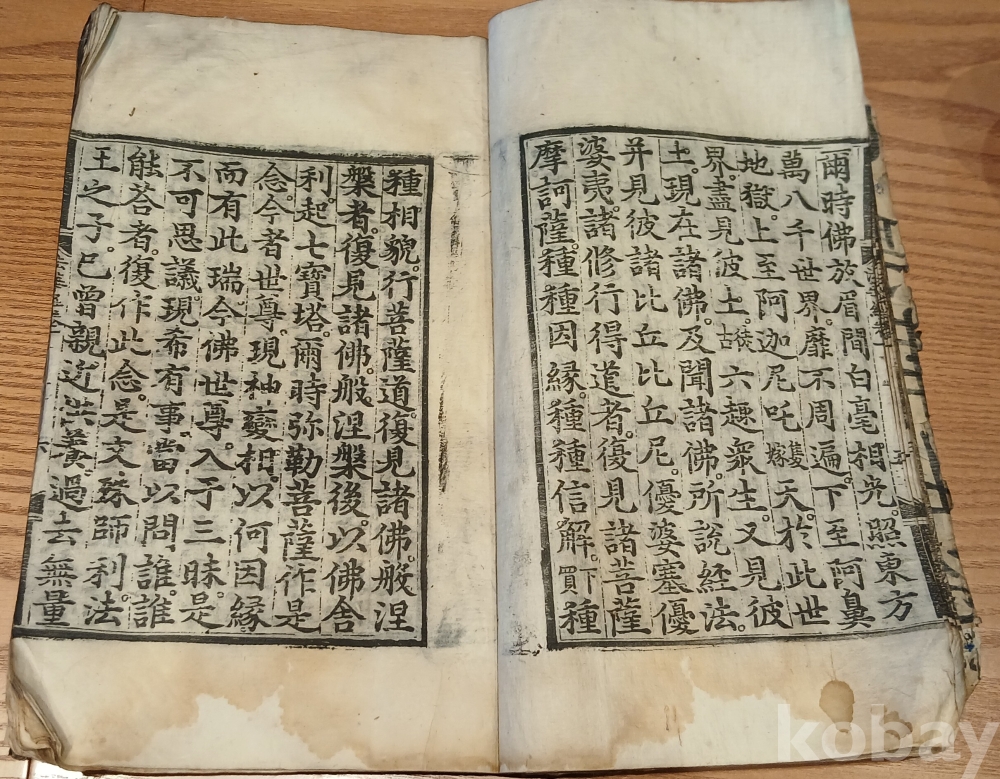 爾時佛放眉間白毫相光。照東方
萬八千世界。靡不周遍。下至阿鼻
地獄。上至阿迦尼吒隻嫁天。於此世
界。盡見彼土。徒古六趣衆生。又見彼
土。現在諸佛。及聞諸佛。所說經法。
并見彼諸比丘比丘尼。優婆塞優
婆夷。諸修行得道者。復見諸菩薩
摩訶薩。種種因緣。種種信解。下買種
種相貌。行菩薩道。復見諸佛。般涅
槃者。復見諸佛。般涅槃後。以佛舍
利。起七寶塔。爾時弥勒菩薩作是
念。今者世尊。現神變相。以何因緣
而有此瑞。今佛世尊。入于三昧。是
不可思議。現希有事。當以問誰。誰
能荅者。復作此念。是文殊師利。法
王之子。已曾親近供養。過去無量
kobay